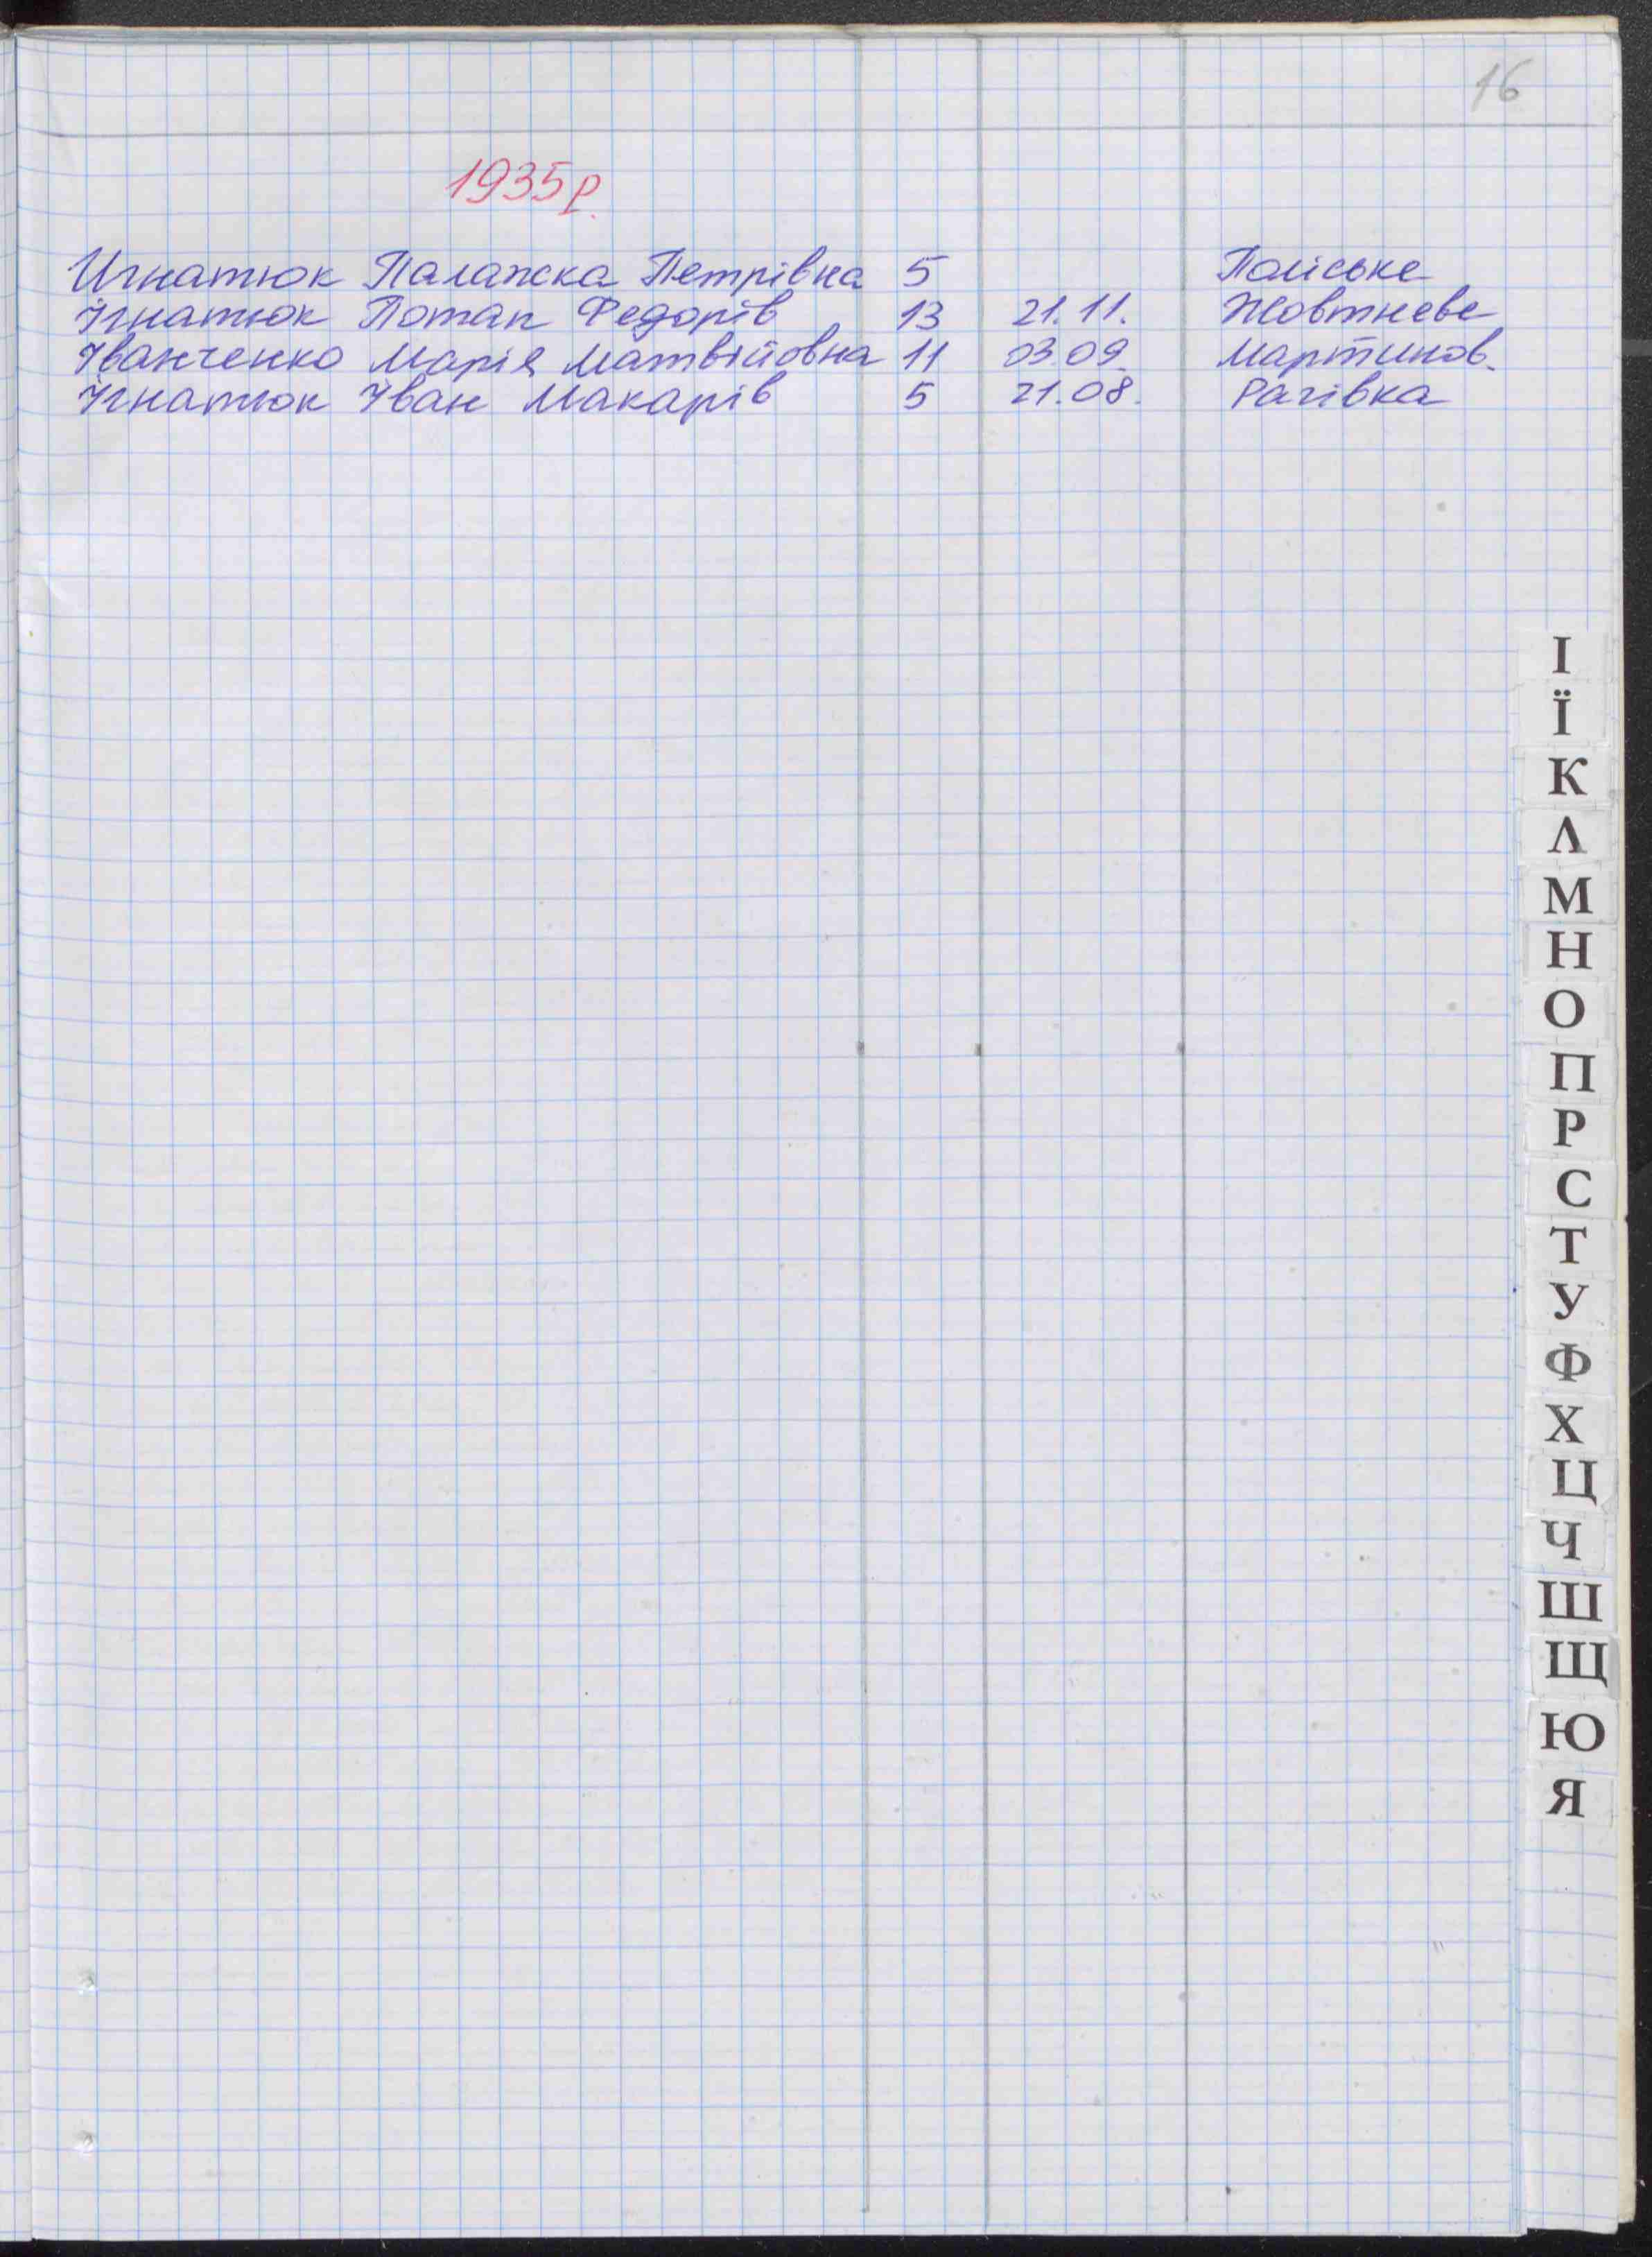 16
1935р.
Игнатюк Палажка Петрівна 5 Поліське
Ігнатюк Потап Федорів 13 21.11. Жовтневе
Іванченко Марія Матвійовна 11 03.09. Мартинов.
Ігнатюк Іван Макарів 5 21.08. Рагівка
І
Ї
К
Л
М
Н
О
П
Р
С
Т
У
Ф
Х
Ц
Ч
Ш
Щ
Ю
Я